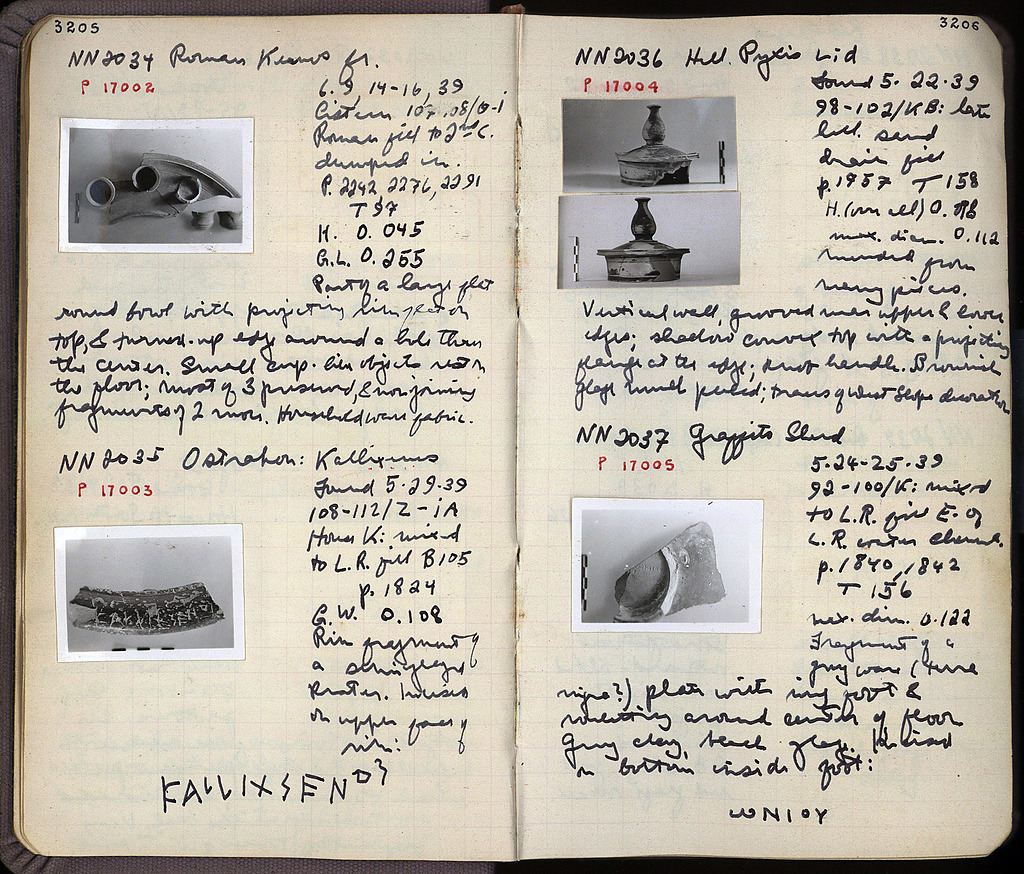 3205
NN2034 Roman Kernos fr.
P 17002
6. 9, 14-16, 39
Cistern
Roman fill to 2nd c.
dumped in.
P. 2242, 2276, 2291
T 97
H. 0.045
G.L. 0.255
Part of a large flat
round bowl with projecting flange on
top, & turned-up edge around a hole thru
the center. Small cup-like objects rest on
the floor; most of 3 preserved, & non joining
fragments of 2 more. Household ware fabric.
NN2035 Ostrakon: Kallixenos
P 17003
Found 5-29-39
108-112/Z-iA
House K: mixed
to L.R. fill B105
p. 1824
G.W. 0.108
Rim fragment of
a semiglazed
krater. Incised
on upper face of
rim:
KALLIXSENO
3206
NN2036 Hell. Pyxis Lid
P 17004
Found 5-22-39
98-102/KB: late
hell. sand
drain fill
p. 1957 T 158
H. (over all)
max. diam. 0.112
mended from
many pieces.
Vertical wall, grooved near upper & lower
edges; shallow convex top with a projecting
flange at the edge; knob handle. Brownish
glaze much peeled; traces of West Slope decoration
NN2037 Graffito Sherd
P 17005
5-24-25-39
92-100/K: mixed
to L.R. fill E. of
L.R. water channel.
p. 1840, 1842
T 156
max. dim. 0.122
Fragment of a
grey ware (terra
nigra?) plate with ring foot &
rouletting around center of floor
Grey clay, black glaze. Incised
on bottom inside foot:
ωNIOY